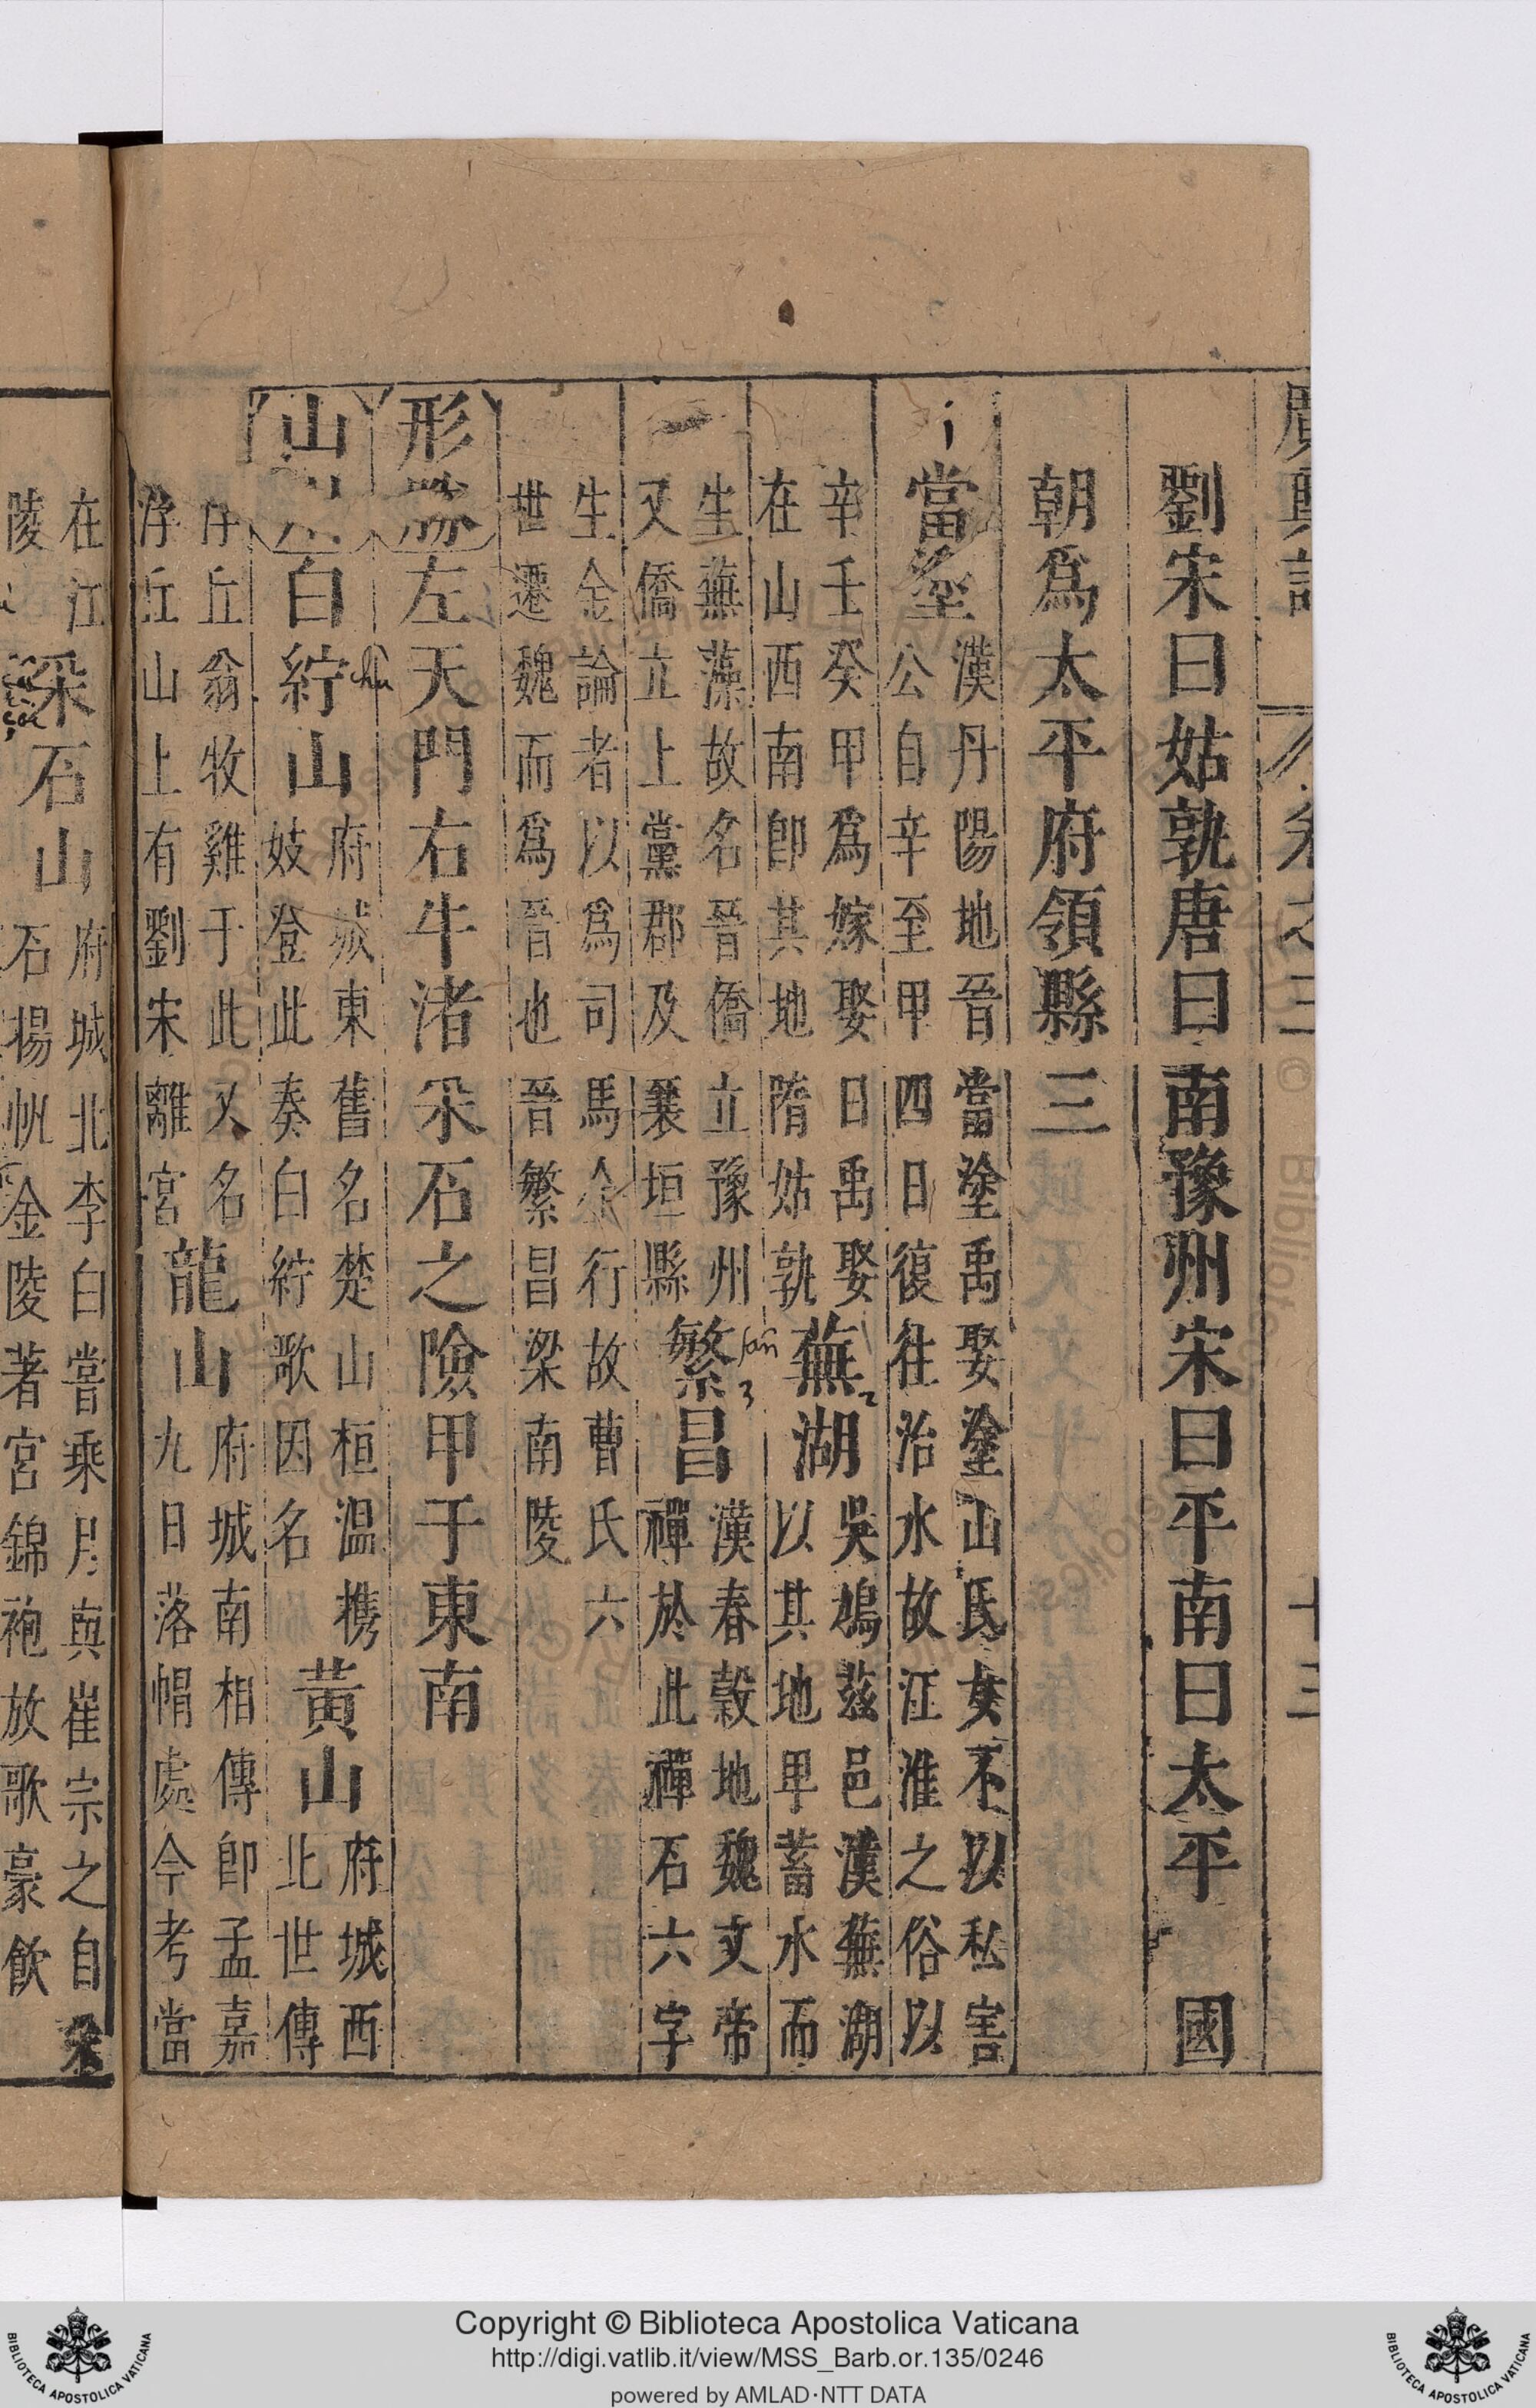 廣輿記 卷之三 十三
劉宋曰姑孰唐曰南豫州宋曰平南曰太平 國
朝爲太平府領縣三
當塗 漢丹陽地晉當塗禹娶塗山氏女不以私害
公自辛至甲四日復往治水故江淮之俗以
辛壬癸甲爲嫁娶日禹娶
在山西南卽其地隋姑孰
蕪湖 吳鳩茲邑漢蕪湖
以其地卑蓄水而
生蕪藻故名晉僑立豫州
又僑立上黨郡及襄垣縣
繁昌 漢春穀地魏文帝
禪於此禪石六字
生金論者以爲司馬金行故曹氏六
世遷魏而爲晉也晉繁昌梁南陵
形勝 左天門右牛渚采石之險甲于東南
山川 白紵山 府城東舊名楚山桓溫攜
妓登此奏白紵歌因名
黃山 府城西
北世傳
浮丘翁牧雞于此又名
浮丘山上有劉宋離宮
龍山 府城南相傳卽孟嘉
九日落帽處今考當
在江
采石山 府城北李白嘗乘月與崔宗之自采
石揚帆金陵著宮錦袍放歌豪飲
i
2
fân
3
chu
Copyright © Biblioteca Apostolica Vaticana
http://digi.vatlib.it/view/MSS_Barb.or.135/0246
powered by AMLAD·NTT DATA
BIBLIOTECA APOSTOLICA VATICANA
BIBLIOTECA APOSTOLICA VATICANA